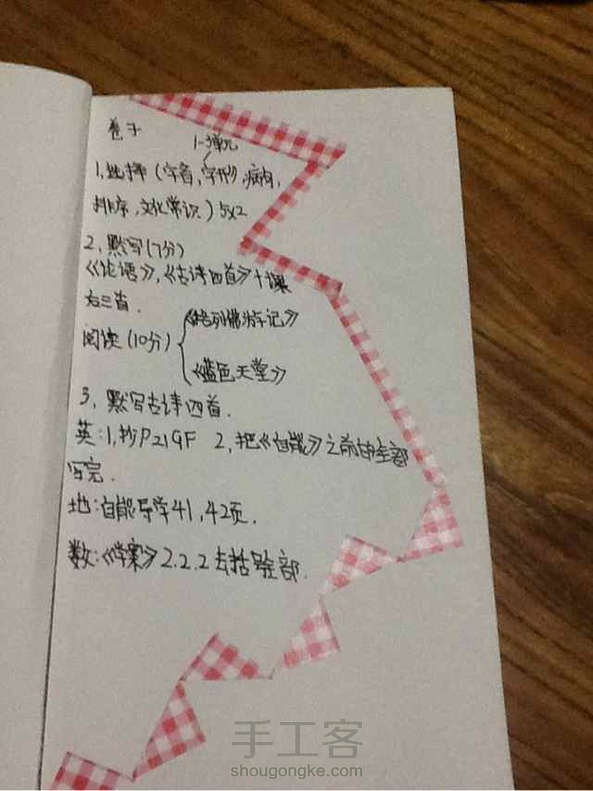 卷子
1-3单元
1,选择(字音,字形,病句,
排序,文化常识)5x2
2,默写(7分)
《论语》,《古诗四首》+课
后三首.
阅读(10分)
《格列佛游记》
《蓝色天堂》
3,默写古诗四首.
英:1,抄P21GF 2,把《自能》之前的全部
写完.
地:自能导学41,42页.
数:《学案》2.2.2去括号全部.
手工客
shougongke.com